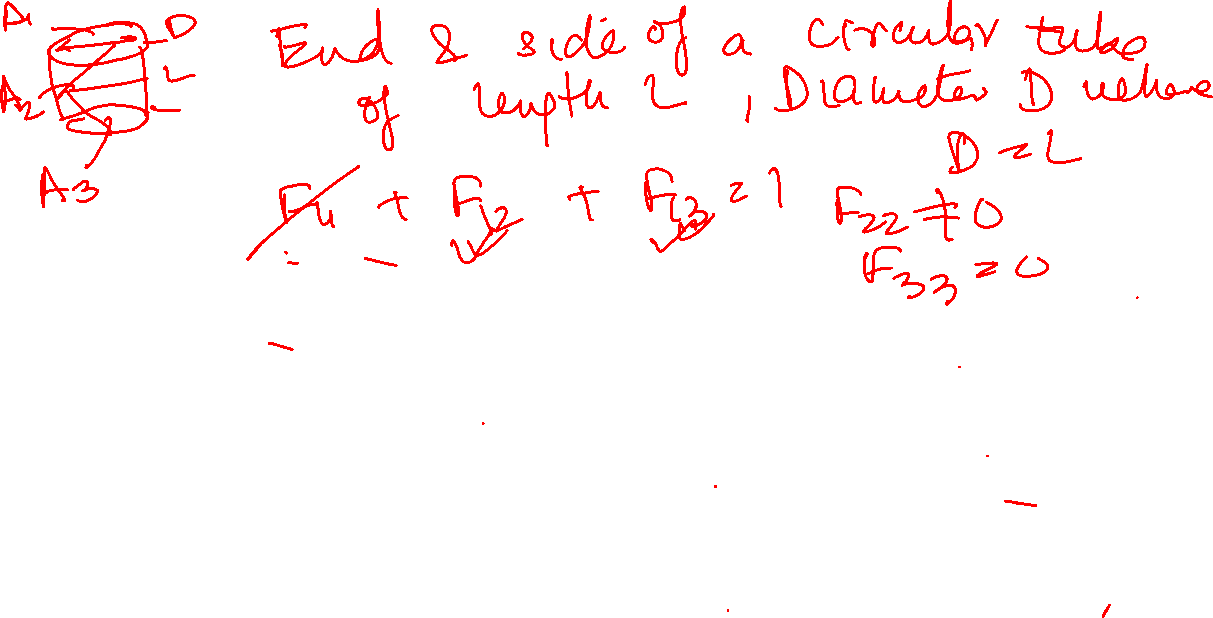 A1 D
L
A2
A3
End & side of a circular tube
of length L, Diameter D where
D = L
F11 + F12 + F13 = 1 F22 ≠ 0
F33 = 0